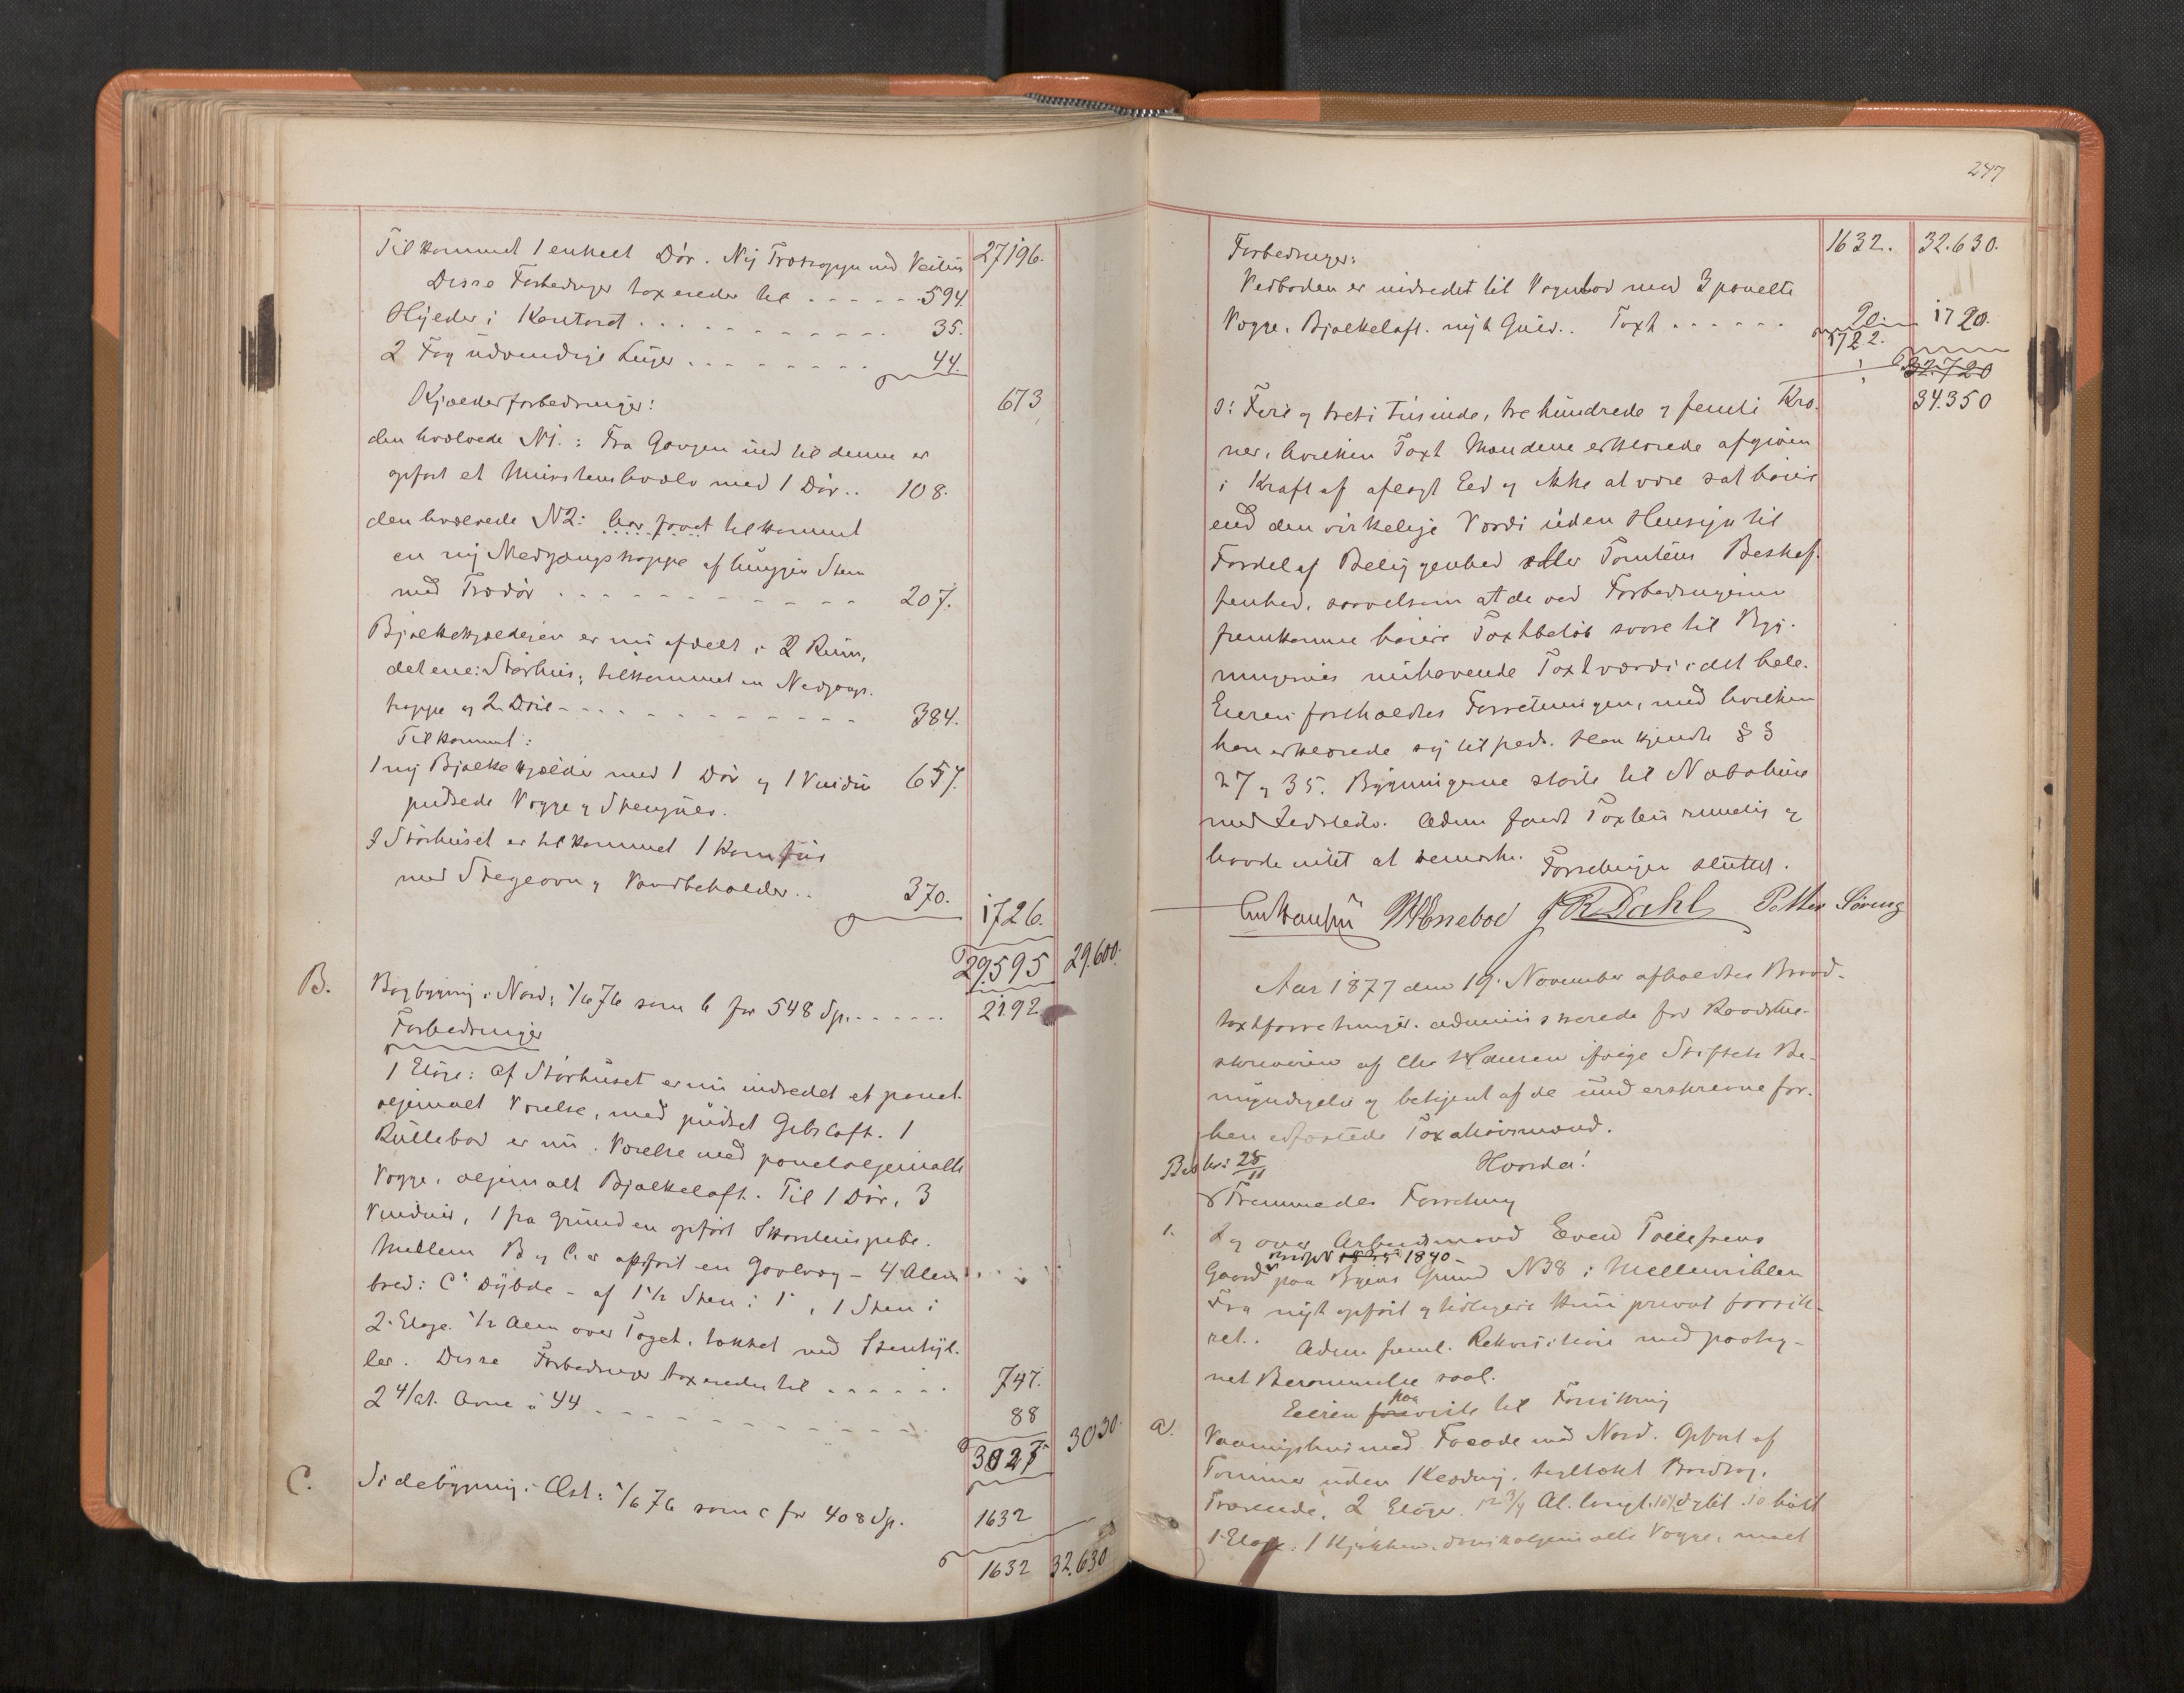 Tilkommet 1 enkelt Dör. Ny Trætrappe med 27196.
Disse Forbedringer taxeredes til - - - - - - 594.
Hylder i Kontoret . . . . . . . . . . . 35.
2 Fag udvendige Luger - - - - - - - - 44.
Kjælderforbedringer: 673
den hvælvede N1.: Fra Gangen ind til denne er
opfört et Murstenshvælv med 1 Dör . . 108.
den hvælvede N2: har faaet tilkommet
en ny Nedgangstrappe af huggen Sten
med Trædör - - - - - - - - - - - 207.
Bjælkekjælderen er nu afdelt i 2 Rum,
det ene: Störhus; tilkommet en Nedgangs-
trappe og 2 Döre - - - - - - - - - - 384.
Tilkommet:
1 ny Bjælkekjælder med 1 Dör og 1 Vindu 657.
pudsede Vægge og Stengulv.
I Störhuset er tilkommet 1 Komfur
med Stegeovn og Vandbeholder . . 370. 1726.
29595 29.600.
B. Bagbygning i Nord: 1/6 76 som b for 548 Sp. - - - - - 2192
Forbedringer
1 Etage: Af Störhuset er nu indredet et panel-
oljemalt Værelse, med pudset Gibsloft. 1
Rullebod er nu Værelse med paneloljemalte
Vægge, oljemalt Bjælkeloft. Til 1 Dör, 3
Vinduer, 1 fra Grunden opfört Skorstenspibe.
Mellem B og C er opfört en Gavlvæg - 4 Alen
bred: C's Dybde - af 1 1/2 Sten i 1', 1 Sten i
2. Etage. 1/2 Alen over Taget, takket med Stenhyl-
ler. Disse Forbedringer taxeredes til - - - - - - 747.
2 4/Et. Ovne à 44 - - - - - - - - - - 88
3027 3030.
C. Sidebygning i Öst: 1/6 76 som c for 408 Sp. 1632
1632 32.630
247
1632. 32.630.
Forbedringer:
Vedboden er indredet til Vognbod med 3 panelte
Vægge, Bjælkeloft. nyt Gulv. . Taxt - - - - - - 90. 1720.
1722.
32.720
o: Fire og treti Tusinde, tre hundrede og femti Kro- 34.350
ner, hvilken Taxt Mændene erklærede afgiven
i Kraft af aflagt Ed og ikke at være sat höiere
end den virkelige Værdi uden Hensyn til
Fordel af Beliggenhed eller Tomtens Beskaf-
fenhed, saavelsom at de ved Forbedringerne
fremkomne höiere Taxtbelöb svare til Byg-
ningernes nuhavende Taxtværdi i det hele.
Eieren foreholdtes Forretningen, med hvilken
han erklærede sig tilfreds. Han kjendte §§
27 og 35. Bygningerne stöde til Nabohuse
med Ildsteds. Adm. fandt Taxten rimelig og
havde intet at bemærke. Forretningen sluttet.
J R Dahl Petter Söreng
Aar 1877 den 19. November afholdtes Brand-
taxtforretninger. administrerede for Raadstue-
skriveren af Chr Hansen ifölge Stiftets Be-
myndigelse og betjent af de underskrevne for-
hen edfæstede Taxationsmænd.
Beskr: 28/11 Hvorda!
Fremmedes Forretning
1. Lag over Arbeidsmand Even Tollefsens
1840 -
Gaard paa Byens Grund N38 i Mellemiklen
Fra nyt opfört og tidligere kun privat forsik-
ret. Adm. freml. Rekvisition med paateg-
net Berammelse saal.
paa
Eieren viste til Forsikring
a. Vaaningshus med Facade mod Nord. Opfört af
Tömmer uden Klædning, tegltækt Bordtag,
Træsende, 2 Etager. 12 3/4 Al. langt. 10 1/2 dybt. 10 höit
1. Etage: 1 Kjökken. oljemalte Vægge, malt